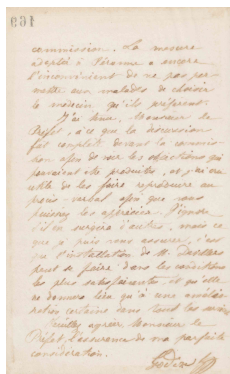 commission. La mesure
adoptée à Péronne a encore
l'inconvénient de ne pas per-
mettre aux malades de choisir
le médecin qu'ils préfèrent.
J'ai tenu, Monsieur le
Préfet, à ce que la discussion
fut complète devant la commis-
sion afin de voir les objections qui
pouvaient être produites, et j'ai cru
utile de les faire reproduire au
procès-verbal afin que vous
puissiez les apprécier. J'ignore
s'il en surgira d'autres, mais ce
que je puis vous assurer, c'est
que l'installation de M.
peut se faire dans les conditions
les plus satisfaisantes, et qu'elle
ne donnera lieu qu'à une
certaine dans tous les
Veuillez agréer Monsieur le
Préfet, l'assurance de ma parfaite
considération.